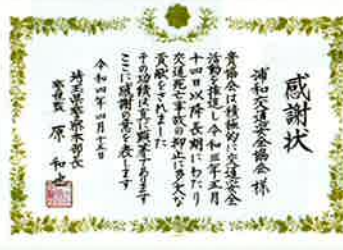 感謝状
浦和交通安全協会 様
貴協会は積極的に交通安全
活動を推進し令和三年五月
十四日以降長期にわたり
交通死亡事故の抑止に多大な
貢献をされました
その功績は真に顕著であります
ここに感謝の意を表します
令和四年四月十五日
埼玉県警察本部長
警視監 原 和也